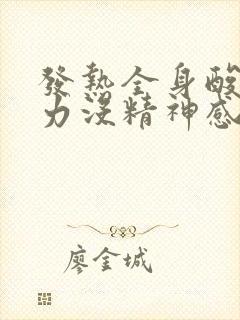 發熱全身酸
力沒精神感
廖金城